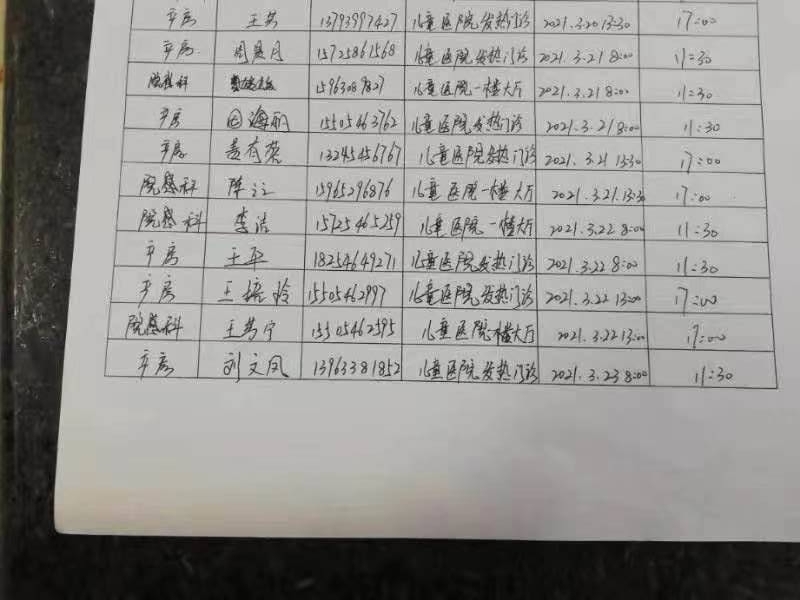 平房 王芳 13793997427 儿童医院发热门诊 2021.3.20 13:30 17:00
平房 周晨月 15725861568 儿童医院发热门诊 2021.3.21 8:00 11:30
院感科 15963089827 儿童医院一楼大厅 2021.3.21 8:00 11:30
平房 田海丽 15505463762 儿童医院发热门诊 2021.3.21 8:00 11:30
平房 13245456767 儿童医院发热门诊 2021.3.21 13:30 17:00
院感科 陈 15965296876 儿童医院一楼大厅 2021.3.21.13:30 17:00
院感科 李洁 15725465259 儿童医院一楼大厅 2021.3.22 8:00 11:30
平房 王亚 18254649271 儿童医院发热门诊 2021.3.22 8:00 11:30
平房 王振玲 15505462997 儿童医院发热门诊 2021.3.22 13:00 17:00
院感科 王芳宁 15505462595 儿童医院一楼大厅 2021.3.22 13:00 17:00
平房 刘文凤 13963381852 儿童医院发热门诊 2021.3.23 8:00 11:30